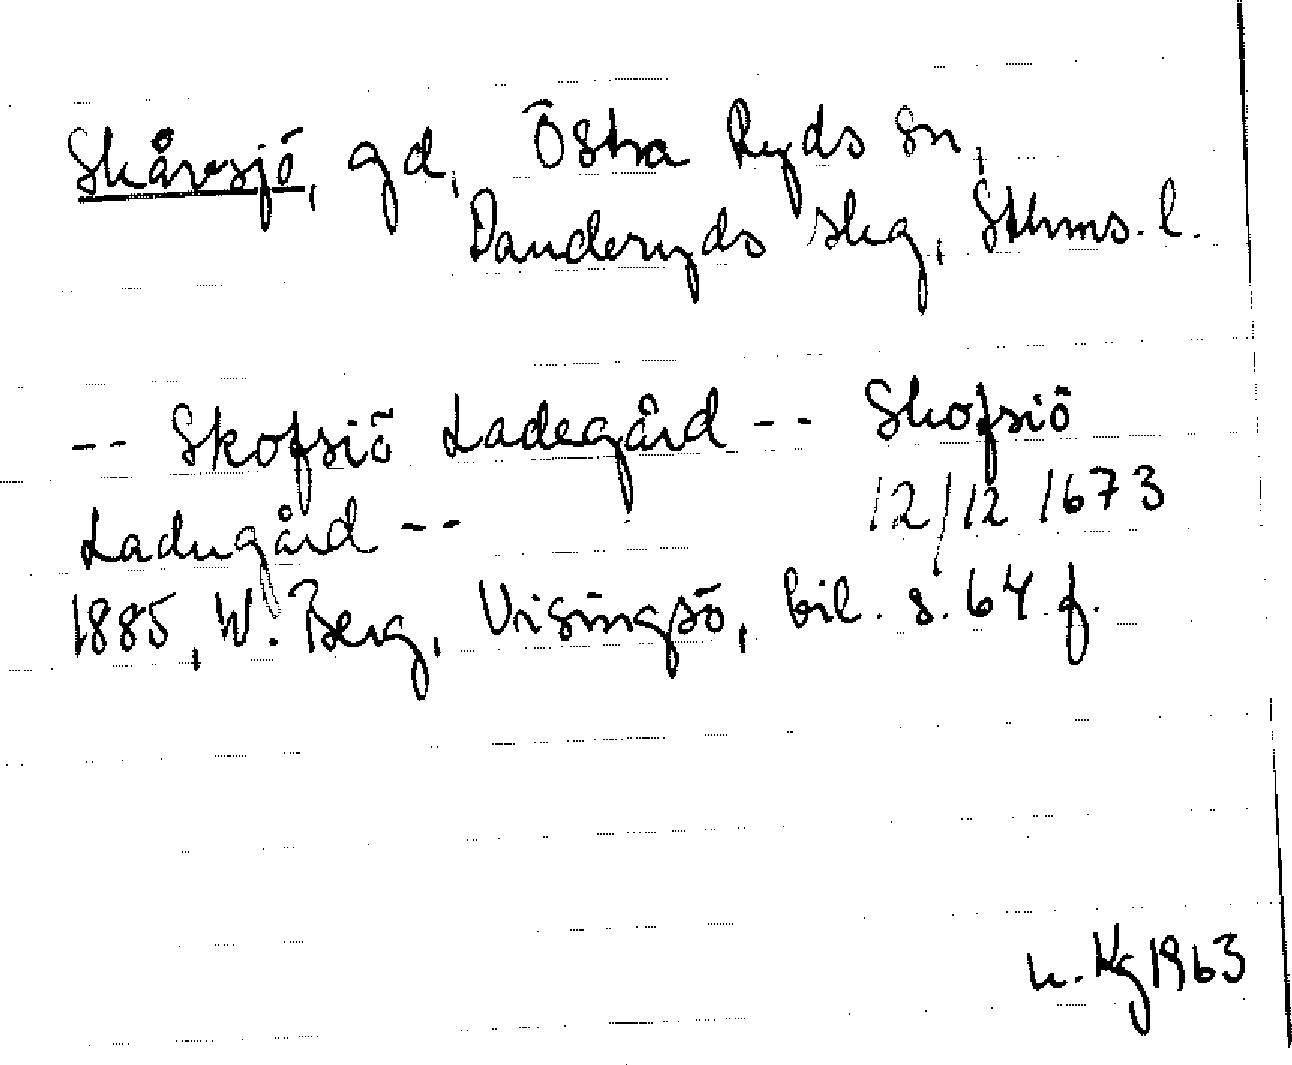 Skåvsjö, gd, Östra Ryds sn,
Danderyds skg, Sthms. l.
-- Skofsiö Ladegård -- Skofsiö
Ladugård -- 12/12 1673
1885, W. Berg, Visingsö, bil. s. 64 f.
Kg 1963